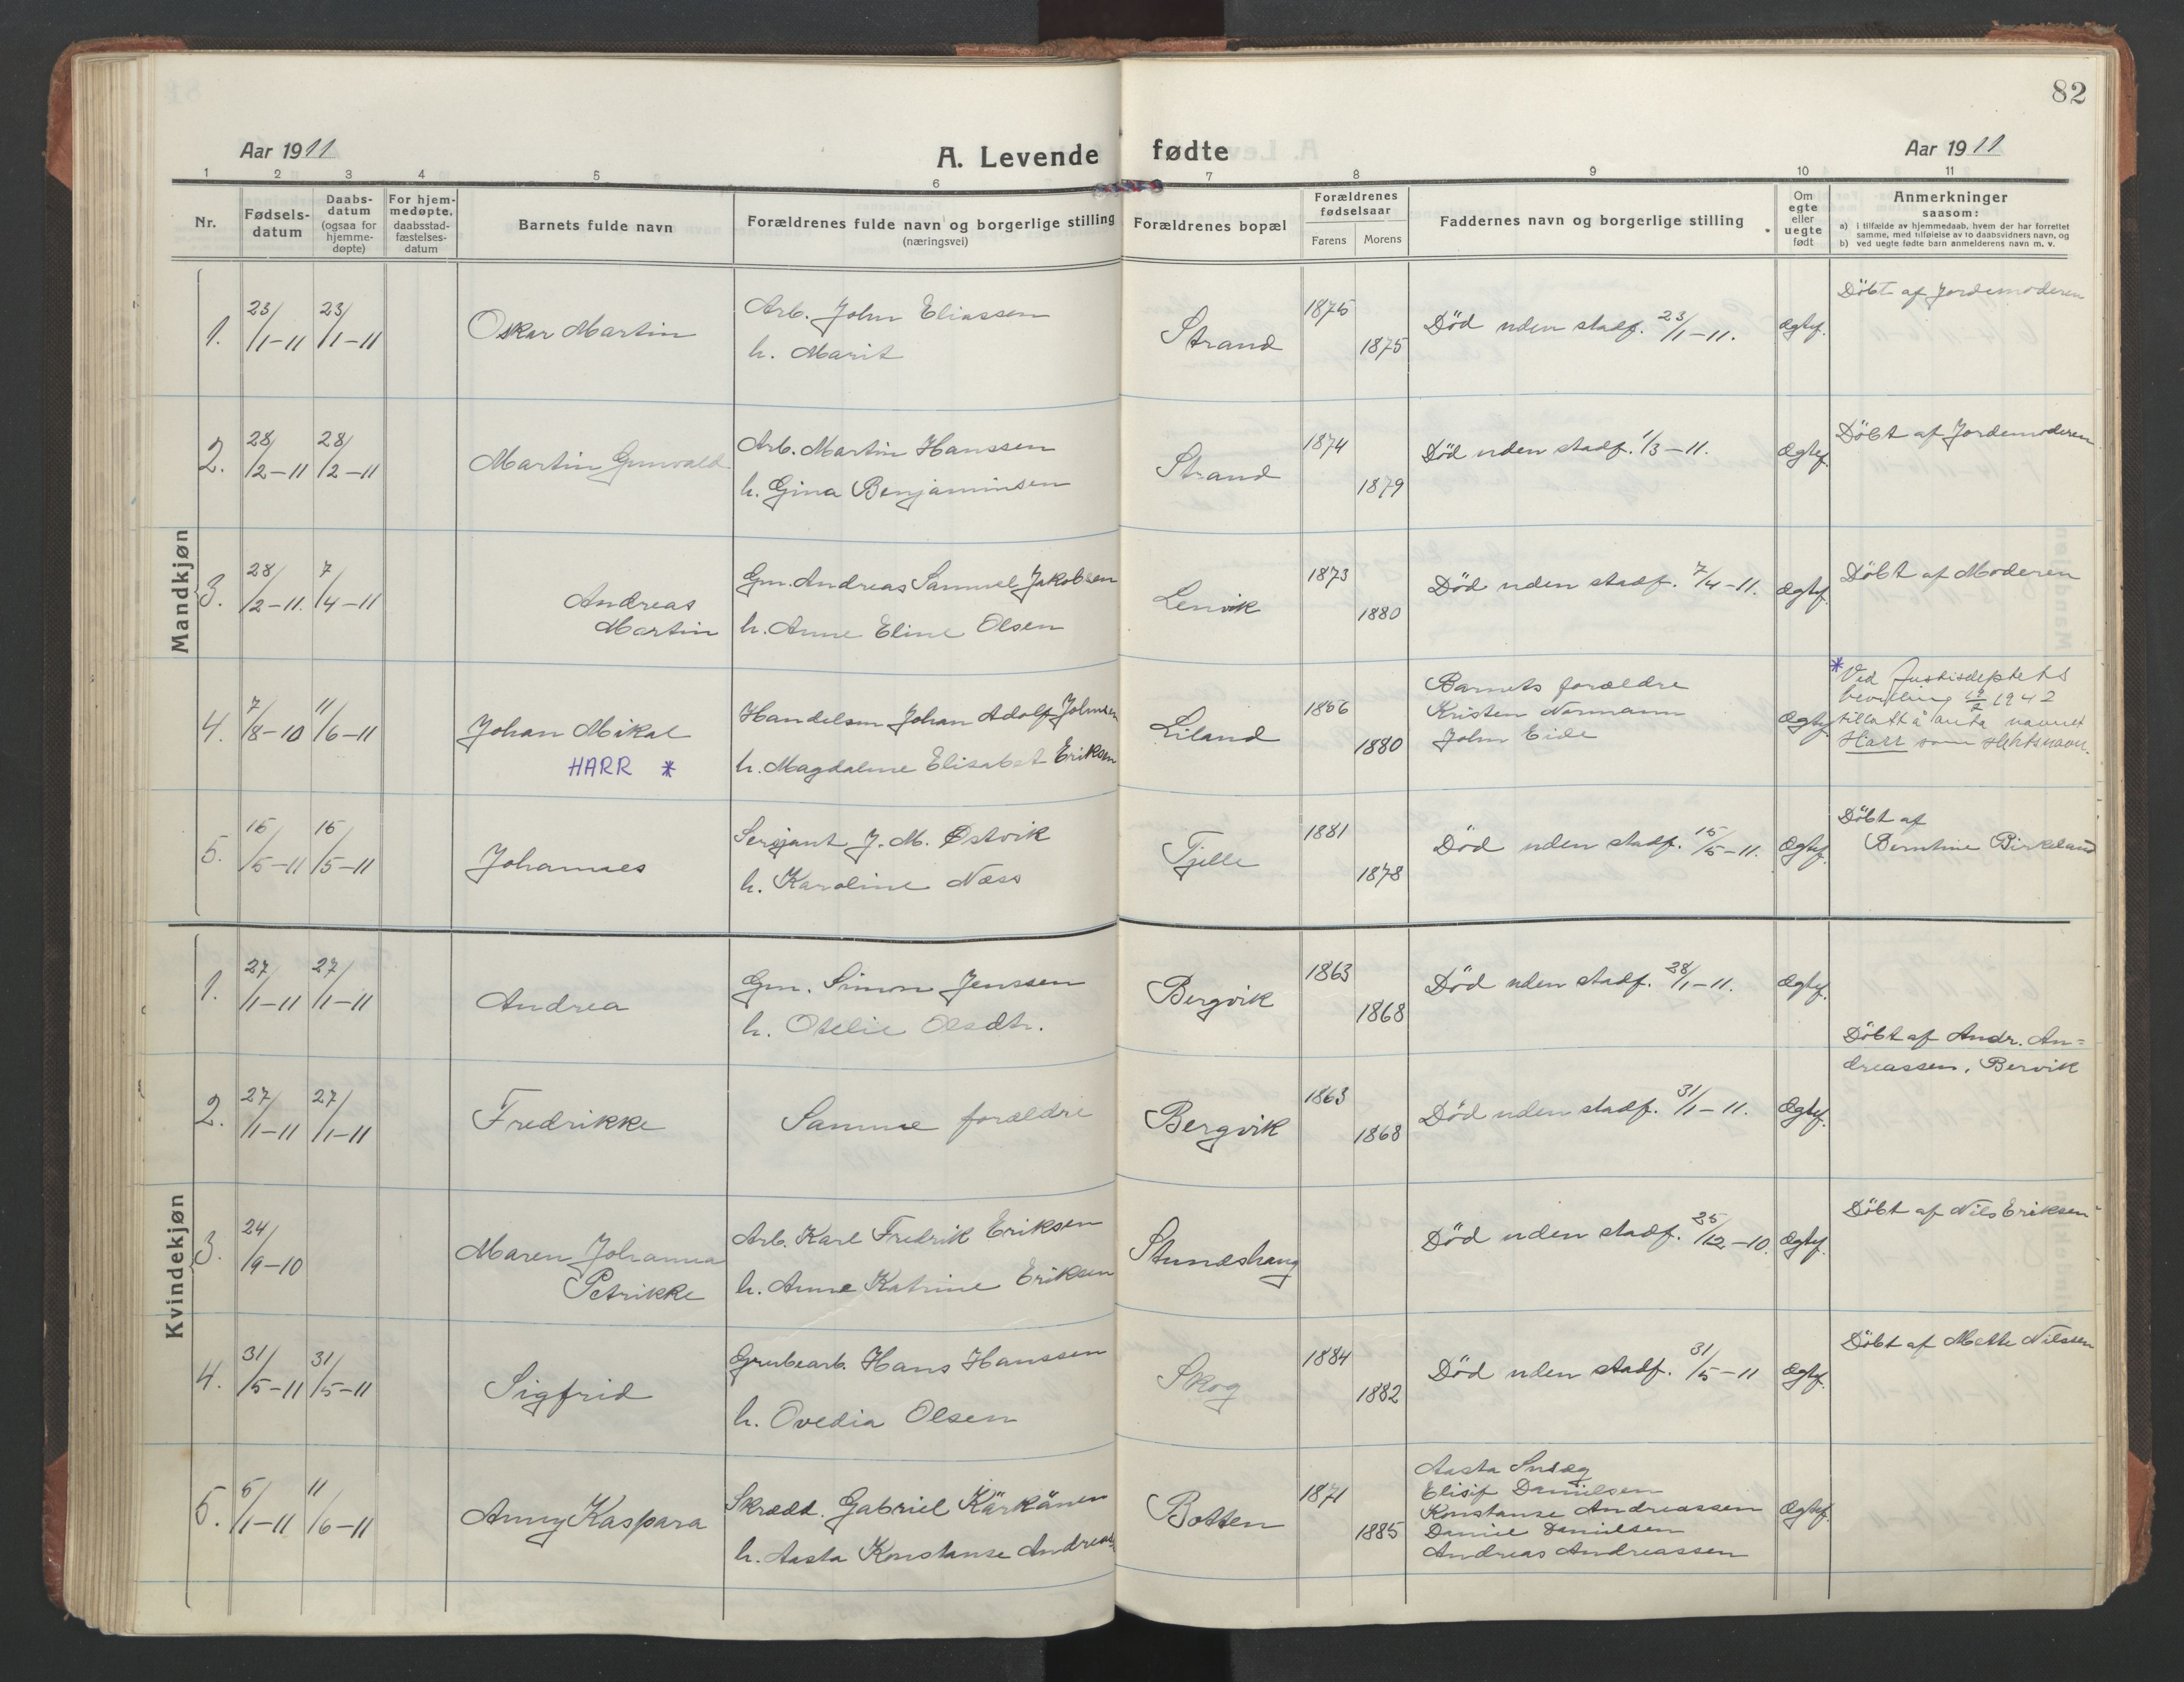 82
Aar 1911
A. Levende fødte
Aar 1911
1 2 3 4 5 6 7 8 9 10 11
Nr.
Fødsels-
datum
Daabs-
datum
(ogsaa for
hjemme-
døpte)
For hjem-
medøpte,
daabsstad-
fæstelses-
datum
Barnets fulde navn
Forældrenes fulde navn og borgerlige stilling
(næringsvei)
Forældrenes bopæl
Forældrenes
fødselsaar
Farens
Morens
Faddernes navn og borgerlige stilling
Om
egte
eller
uegte
født
Anmerkninger
saasom:
a) i tilfælde av hjemmedaab, hvem der har forrettet
samme, med tilføielse av to daabsvidners navn, og
b) ved uegte fødte barn anmelderens navn m. v.
Mandkjøn
1. 23/1-11 23/1-11 Oskar Martin
Arb. John Eliassen
h. Marit
Strand 1875 1875 Död uden stadf. 23/1-11. Ægtef.
Döbt af Jordemoderen
2. 28/2-11 28/2-11 Martin Gunvald
Arb. Martin Hanssen
h. Gina Benjaminsen
Strand 1874 1879 Död uden stadf. 1/3-11. Ægtef.
Döbt af Jordemoderen
3. 28/2-11. 7/4-11 Andreas
Martin
Gm. Andreas Samuel Jakobsen
h. Anne Eline Olsen
Lenvik 1873 1880 Död uden stadf. 7/4-11. Ægtef.
Döbt af Moderen
4. 7/8-10 11/6-11 Johan Mikal
HARR *
Handelsm Johan Adolf Johnsen
h. Magdalene Elisabet Eriksen
Liland 1866 1880
Barnets forældre
Kristen Normann
John Eide
Ægtef.
* Ved Justisdeptets
bevilling 1942
tillatt å anta navnet
Harr som slektsnavn.
5. 15/5-11 15/5-11 Johannes
Sersjant J. M. Østvik
h. Karoline Næss
Tjelle 1881 1878 Död uden stadf. 15/5-11. Ægtef.
Döbt af
Berntine Birkeland
Kvindekjøn
1. 27/1-11 27/1-11 Andrea
Gm. Simon Jenssen
h. Otelie Olsdtr.
Bergvik 1863 1868 Död uden stadf. 28/1-11. Ægtef.
Döbt af Andr. An=
dreassen, Bervik
2. 27/1-11 27/1-11 Fredrikke
Samme forældre
Bergvik 1863 1868 Död uden stadf. 31/1-11. Ægtef.
3. 24/9-10 Maren Johanna
Petrikke
Arb. Karl Fredrik Eriksen
h. Anne Katrine Eriksen
Död uden stadf. 25/12-10. Ægtef.
Döbt af Nils Eriksen
4. 31/5-11 31/5-11 Sigfrid
Grubearb. Hans Hanssen
h. Ovedia Olsen
Skog 1884 1882 Död uden stadf. 31/5-11 Ægtef.
Döbt af Mette Nilssen
5. 5/1-11 11/6-11 Anny Kaspara
Skrædd. Gabriel Kärkänen
h. Aasta Konstanse Andreas
Botten 1871 1885
Aasta
Elisif Danielsen
Konstanse Andreassen
Daniel Danielsen
Andreas Andreassen
Ægtef.